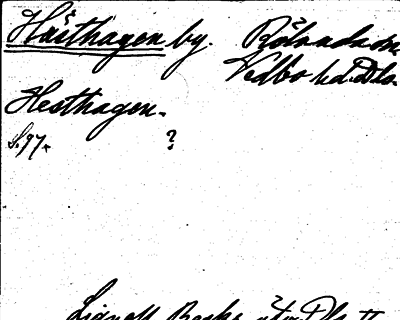 Hästhagen by. Rölanda sn.
Vedbo hd. Dls.
Hesthagen.
S. 97. ?
Lignell Beskr. öfv. Dls II